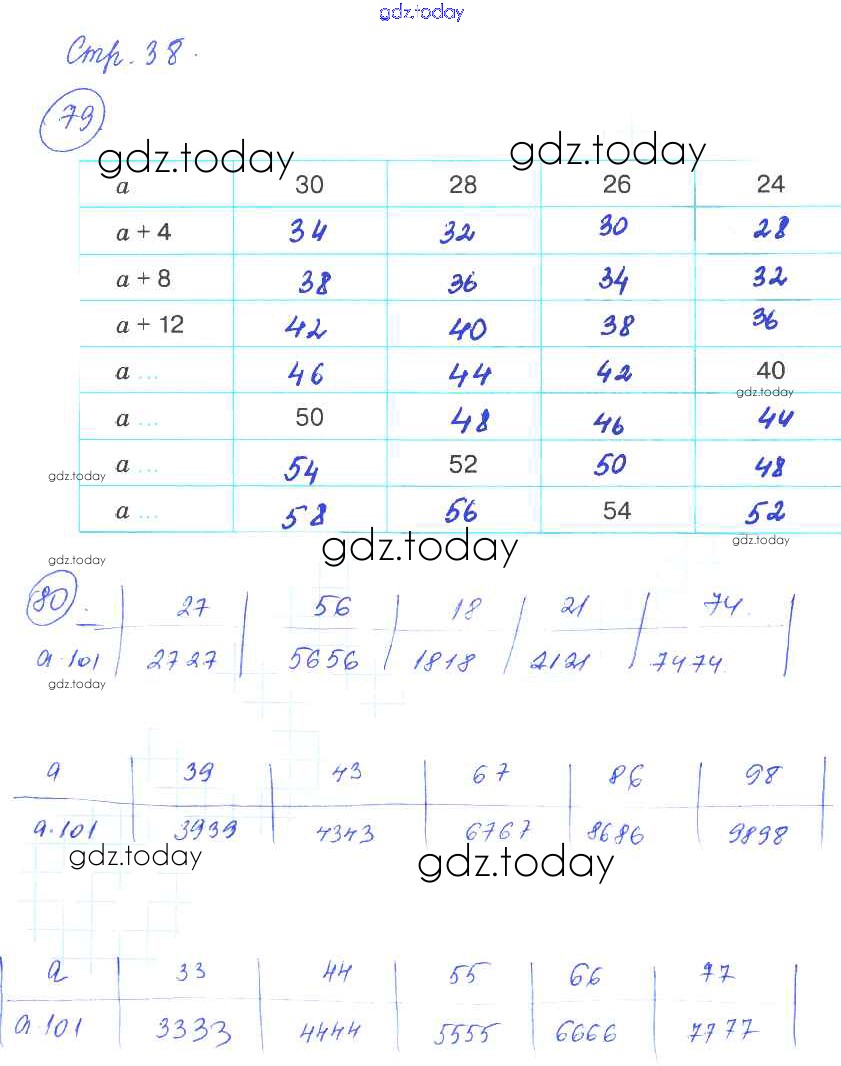 gdz.today
Стр. 38.
79.
gdz.today gdz.today
a 30 28 26 24
a + 4 34 32 30 28
a + 8 38 36 34 32
a + 12 42 40 38 36
a ... 46 44 42 40
gdz.today
a ... 50 48 46 44
a ... 54 52 50 48
gdz.today
a ... 58 56 54 52
gdz.today gdz.today
gdz.today
80. 27 56 18 21 74.
a·101 2727 5656 1818 2121 7474.
gdz.today
a 39 43 67 86 98
a·101 3939 4343 6767 8686 9898
gdz.today gdz.today
a 33 44 55 66 77
a·101 3333 4444 5555 6666 7777